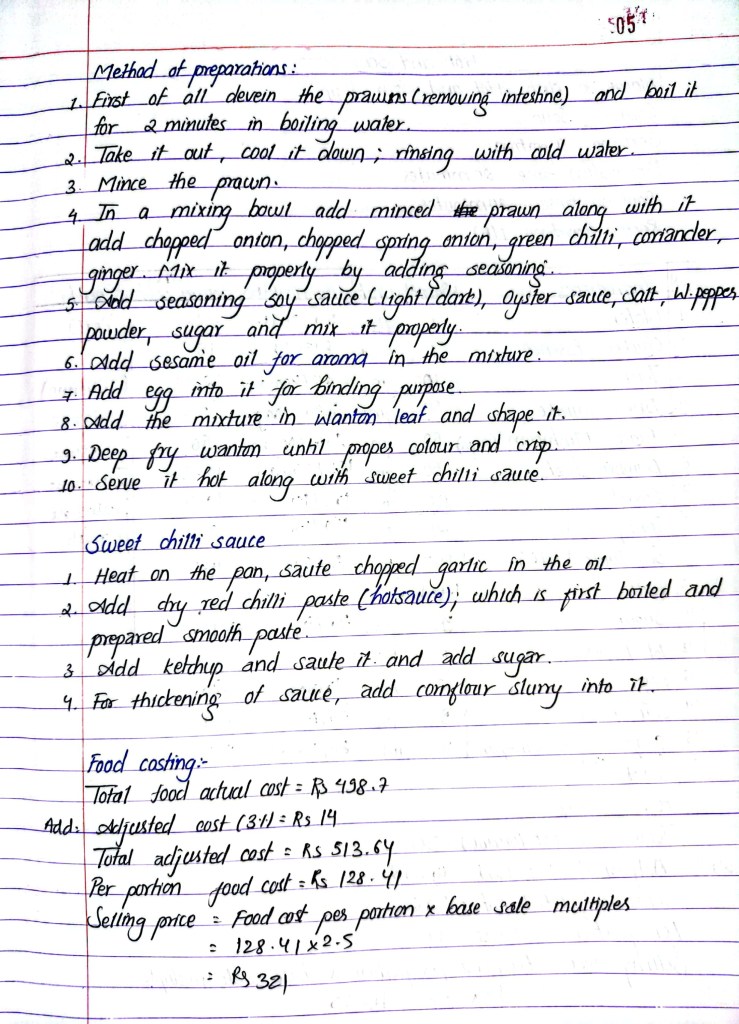 505
Method of preparations:
1. First of all devein the prawns (removing intestine) and boil it
for 2 minutes in boiling water.
2. Take it out, cool it down; rinsing with cold water.
3. Mince the prawn.
4. In a mixing bowl add minced the prawn along with it
add chopped onion, chopped spring onion, green chilli, coriander,
ginger. Mix it properly by adding seasoning.
5. Add seasoning soy sauce (light/dark), Oyster sauce, salt, W.pepper
powder, sugar and mix it properly.
6. Add sesame oil for aroma in the mixture.
7. Add egg into it for binding purpose.
8. Add the mixture in wanton leaf and shape it.
9. Deep fry wanton until proper colour and crisp.
10. Serve it hot along with sweet chilli sauce.
Sweet chilli sauce
1. Heat on the pan, saute chopped garlic in the oil.
2. Add dry red chilli paste (hotsauce); which is first boiled and
prepared smooth paste.
3 Add ketchup and saute it and add sugar.
4. For thickening of sauce, add cornflour slurry into it.
Food costing:-
Total food actual cost = Rs 498.7
Add: Adjusted cost (3%) = Rs 14
Total adjusted cost = Rs 513.64
Per portion food cost = Rs 128.41
Selling price = Food cost per portion x base sale multiples
= 128.41 x 2.5
= Rs 321